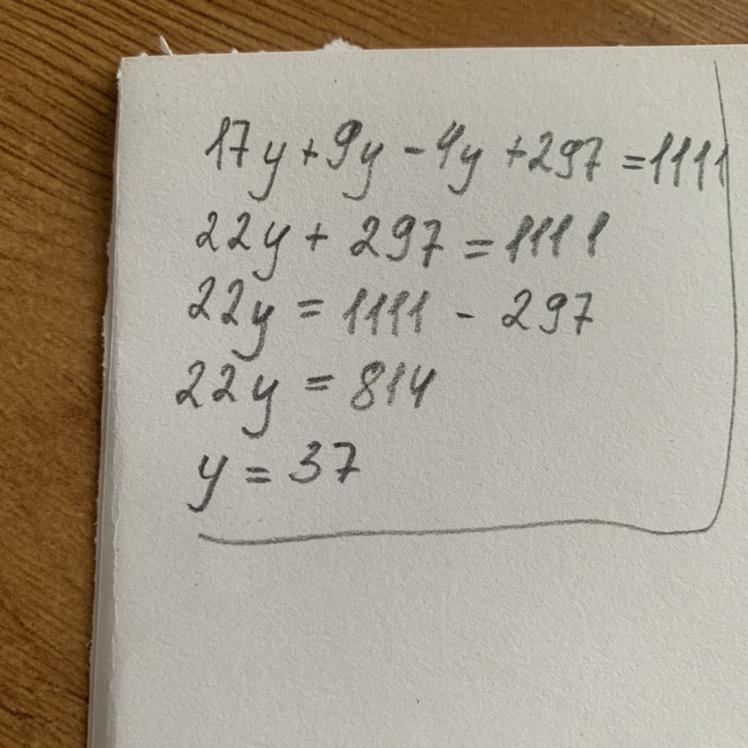 17y+9y-4y+297=1111
22y+297=1111
22y=1111-297
22y=814
y=37